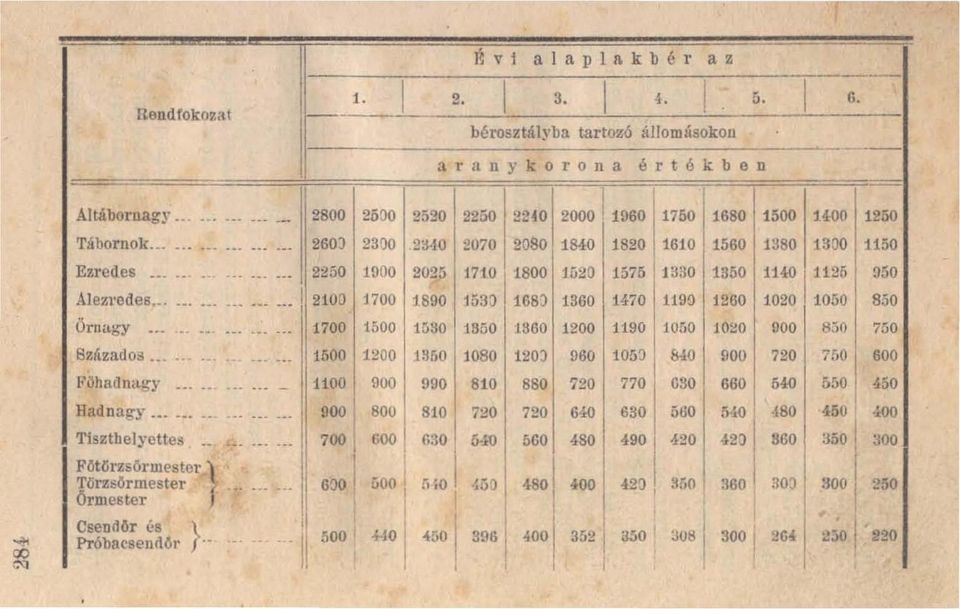 Évi alaplakbér az
Rendfokozat
1. 2. 3. 4. 5. 6.
bérosztályba tartozó állomásokon
aranykorona értékben
Altábornagy 2800 2500 2520 2250 2240 2000 1960 1750 1680 1500 1400 1250
Tábornok 2600 2300 2340 2070 2080 1840 1820 1610 1560 1380 1300 1150
Ezredes 2250 1900 2025 1710 1800 1520 1575 1330 1350 1140 1125 950
Alezredes 2100 1700 1890 1530 1680 1360 1470 1190 1260 1020 1050 850
Őrnagy 1700 1500 1530 1350 1360 1200 1190 1050 1020 900 850 750
Százados 1500 1200 1350 1080 1200 960 1050 840 900 720 750 600
Főhadnagy 1100 900 990 810 880 720 770 630 660 540 550 450
Hadnagy 900 800 810 720 720 640 630 560 540 480 450 400
Tiszthelyettes 700 600 630 540 560 480 490 420 420 360 350 300
Főtörzsőrmester
Törzsőrmester 600 500 540 450 480 400 420 350 360 300 300 250
Őrmester
Csendőr és
Próbacsendőr 500 440 450 396 400 352 350 308 300 264 250 220
284